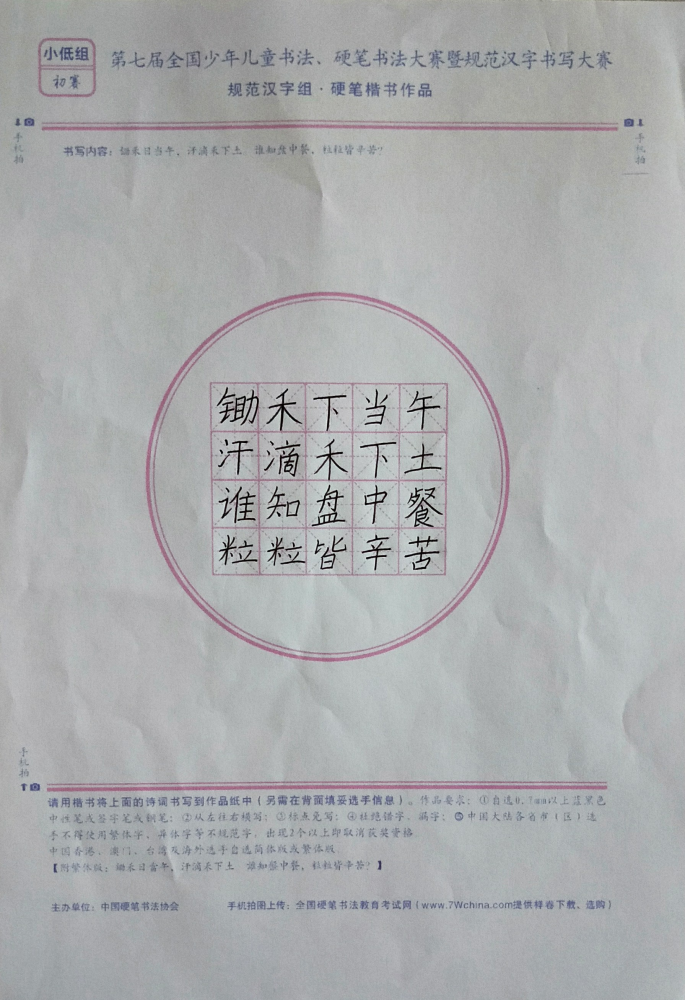 小低组
初赛
第七届全国少年儿童书法、硬笔书法大赛暨规范汉字书写大赛
规范汉字组·硬笔楷书作品
手机拍
手机拍
书写内容：锄禾日当午，汗滴禾下土 谁知盘中餐，粒粒皆辛苦?
锄禾下当午
汗滴禾下土
谁知盘中餐
粒粒皆辛苦
手机拍
请用楷书将上面的诗词书写到作品纸中（另需在背面填妥选手信息）。作品要求：①自选0.7mm以上蓝黑色
中性笔或签字笔或钢笔；②从左往右横写；③标点免写；④杜绝错字、漏字；⑤中国大陆各省市（区）选
手不得使用繁体字、异体字等不规范字，出现2个以上即取消获奖资格
中国香港、澳门、台湾及海外选手自选简体版或繁体版
【附繁体版：鋤禾日當午，汗滴禾下土 誰知盤中餐，粒粒皆辛苦?】
主办单位：中国硬笔书法协会 手机拍图上传：全国硬笔书法教育考试网（www.7Wchina.com提供样卷下载、选购）